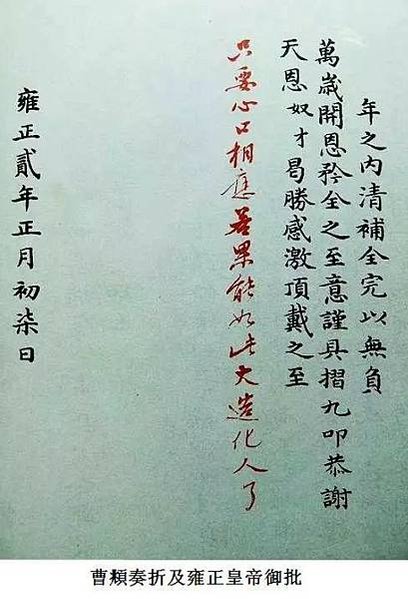 年之內清補全完以無負
萬歲開恩矜全之至意謹具摺九叩恭謝
天恩奴才曷勝感激頂戴之至
只要心口相應若果能如此大造化人了
雍正貳年正月初柒日
曹頫奏折及雍正皇帝御批